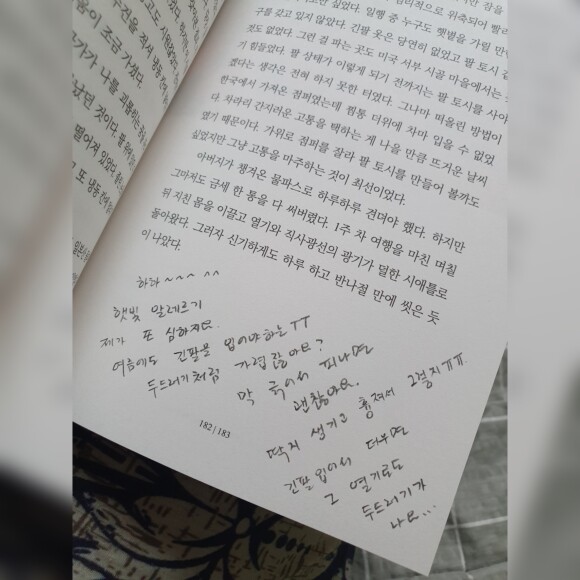 구를 갖고 있지 않았다. 긴팔 옷은 당연히 없었고 팔 토시 같
것도 없었다. 그런 걸 파는 곳도 미국 서부 시골 마을에서는
기 힘들었다. 팔 상태가 이렇게 되기 전까지는 팔 토시를 사야
겠다는 생각은 전혀 하지 못한 터였다. 그나마 떠올린 방법이
한국에서 가져온 점퍼였는데 찜통 더위에 차마 입을 수 없었
다. 차라리 간지러운 고통을 택하는 게 나을 만큼 뜨거운 날씨
였기 때문이다. 가위로 점퍼를 잘라 팔 토시를 만들어 볼까도
싶었지만 그냥 고통을 마주하는 것이 최선이었다.
아버지가 챙겨온 물파스로 하루하루 견뎌야 했다. 하지만
그마저도 금세 한 통을 다 써버렸다. 1주 차 여행을 마친 며칠
뒤 지친 몸을 이끌고 열기와 직사광선의 광기가 덜한 시애틀로
돌아왔다. 그러자 신기하게도 하루 하고 반나절 만에 씻은 듯
이 나았다.
하하~~~ ^^
햇빛 알레르기
제가 또 심하지요.
여름에도 긴팔을 입어야하는ㅜㅜ
두드러기처럼 가렵잖아요?
막 긁어서 피나면
괜찮아요.
딱지 생기고 흉져서 그렇지ㅠㅠ
긴팔 입어서 더우면
그 열기로도
두드러기가
나요...
182 / 183